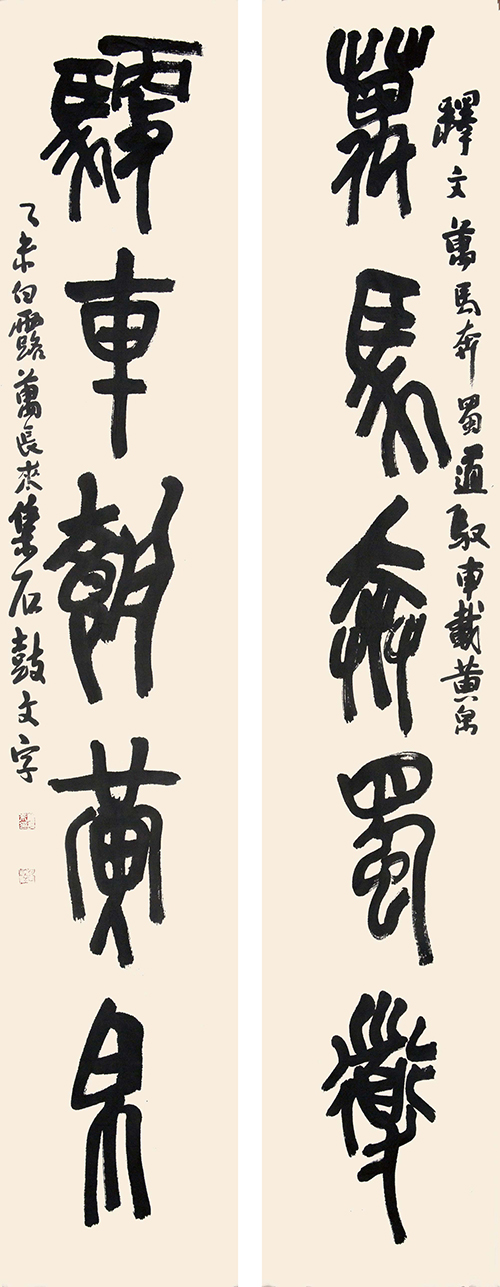 釋文萬馬奔蜀道馭車載黃帛
萬馬奔蜀道
馭車載黃帛
乙未白露萬長來集石鼓文字